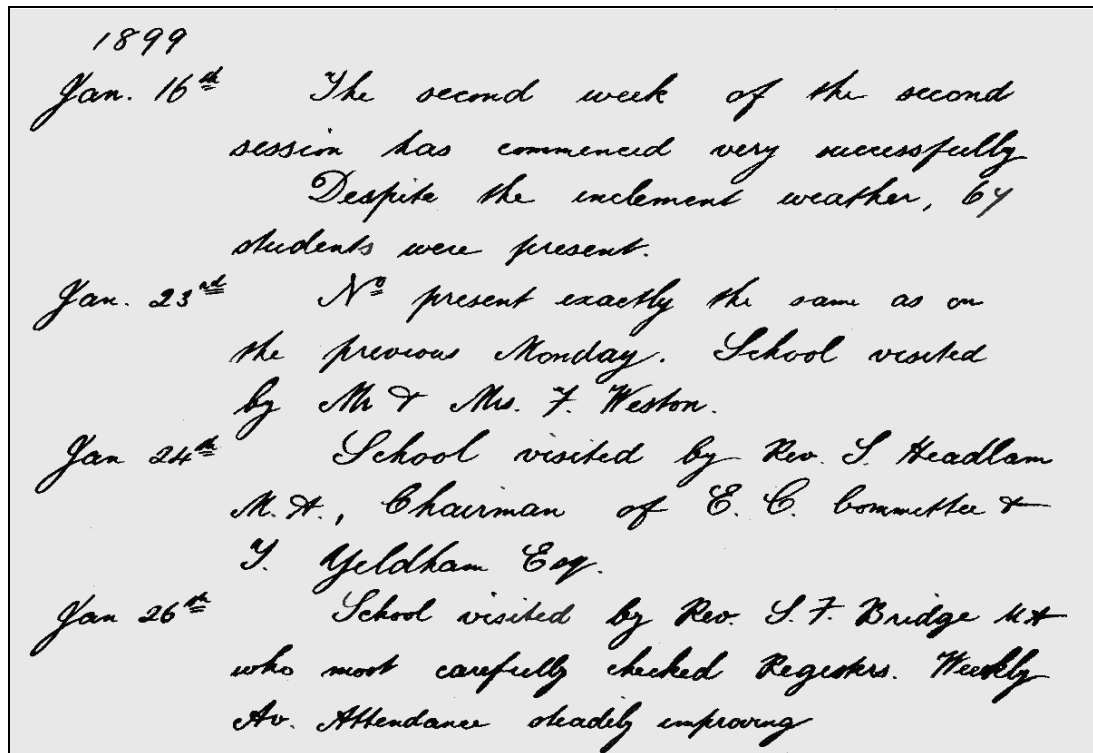 1899
Jan. 16th The second week of the second
session has commenced very successfully
Despite the inclement weather, 64
students were present.
Jan. 23rd No present exactly the same as on
the previous Monday. School visited
by Mr & Mrs. F. Weston.
Jan 24th School visited by Rev. S. Headlam
M.A., Chairman of E. C. Committee &
T. Yeldham Esq.
Jan 26th School visited by Rev. S. F. Bridge MA
who most carefully checked Registers. Weekly
Av. Attendance steadily improving